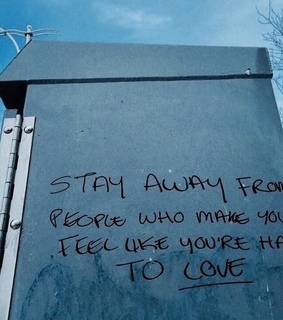 STAY AWAY FROM
PEOPLE WHO MAKE YOU
FEEL LIKE YOU'RE HA
TO LOVE